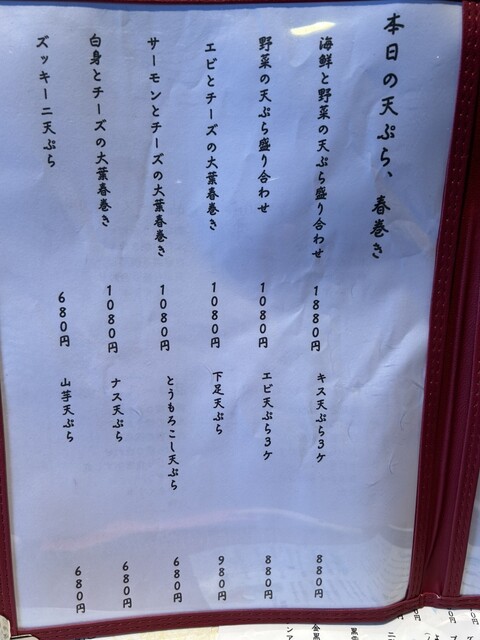 本日の天ぷら、春巻き
海鮮と野菜の天ぷら盛り合わせ 1880円
野菜の天ぷら盛り合わせ 1080円
エビとチーズの大葉春巻き 1080円
サーモンとチーズの大葉春巻き 1080円
白身とチーズの大葉春巻き 1080円
ズッキーニ天ぷら 680円
キス天ぷら3ケ 880円
エビ天ぷら3ケ 880円
下足天ぷら 980円
とうもろこし天ぷら 680円
ナス天ぷら 680円
山芋天ぷら 680円